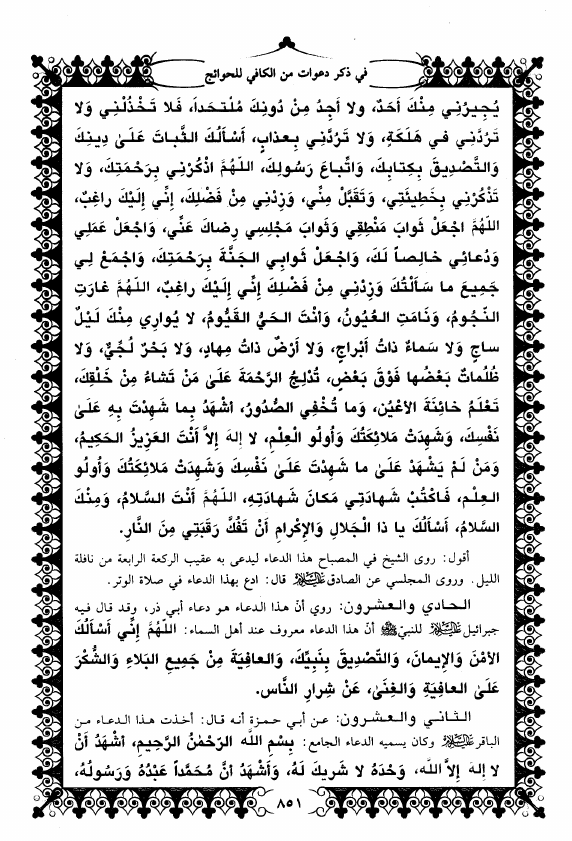 في ذكر دعوات من الكافي للحوائج
يُجِيرُنِي مِنْكَ أَحَدٌ، ولا أَجِدُ مِنْ دُونِكَ مُلْتَحَداً، فَلا تَخْذُلْنِي وَلا
تَرُدَّنِي في هَلَكَةٍ، وَلا تَرُدَّنِي بِعذابٍ، أَسْأَلُكَ الثَّباتَ عَلَىٰ دِينِكَ
وَالتَّصْدِيقَ بِكِتابِكَ، وَاتِّباعَ رَسُولِكَ، اللهُمَّ اذْكُرْنِي بِرَحْمَتِكَ، وَلا
تَذْكُرْنِي بِخَطِيئَتِي، وَتَقَبَّلْ مِنِّي، وَزِدْنِي مِنْ فَضْلِكَ، إِنِّي إِلَيْكَ راغِبٌ،
اللهُمَّ اجْعَلْ ثَوابَ مَنْطِقِي وَثَوابَ مَجْلِسِي رِضاكَ عَنِّي، وَاجْعَلْ عَمَلِي
وَدُعائِي خالِصاً لَكَ، وَاجْعَلْ ثَوابِيَ الجَنَّةَ بِرَحْمَتِكَ، وَاجْمَعْ لِي
جَمِيعَ ما سَأَلْتُكَ وَزِدْنِي مِنْ فَضْلِكَ إِنِّي إِلَيْكَ راغِبٌ، اللهُمَّ غارَتِ
النُّجُومُ، وَنامَتِ العُيُونُ، وَأَنْتَ الحَيُّ القَيُّومُ، لا يُوارِي مِنْكَ لَيْلٌ
ساجٍ وَلا سَماءٌ ذاتُ أَبْراجٍ، وَلا أَرْضٌ ذاتُ مِهادٍ، وَلا بَحْرٌ لُجِّيٌّ، وَلا
ظُلُماتٌ بَعْضُها فَوْقَ بَعْضٍ، تُدْلِجُ الرَّحْمَةَ عَلَىٰ مَنْ تَشاءُ مِنْ خَلْقِكَ،
تَعْلَمُ خائِنَةَ الأَعْيُنِ، وَما تُخْفِي الصُّدُورُ، أَشْهَدُ بِما شَهِدْتَ بِهِ عَلَىٰ
نَفْسِكَ، وَشَهِدَتْ مَلائِكَتُكَ وَأُولُو العِلْمِ، لا إِلهَ إِلاَّ أَنْتَ العَزِيزُ الحَكِيمُ،
وَمَنْ لَمْ يَشْهَدْ عَلَىٰ ما شَهِدْتَ عَلَىٰ نَفْسِكَ وَشَهِدَتْ مَلائِكَتُكَ وَأُولُو
العِلْمِ، فَاكْتُبْ شَهادَتِي مَكانَ شَهادَتِهِ، اللهُمَّ أَنْتَ السَّلامُ، وَمِنْكَ
السَّلامُ، أَسْأَلُكَ يا ذا الجَلالِ وَالإِكْرامِ أَنْ تَفُكَّ رَقَبَتِي مِنَ النَّارِ.
أقول: روى الشيخ في المصباح هذا الدعاء ليدعى به عقيب الركعة الرابعة من نافلة
الليل. وروى المجلسي عن الصادق عليه السلام قال: ادع بهذا الدعاء في صلاة الوتر.
الحادي والعشرون: روي أنّ هذا الدعاء هو دعاء أبي ذر، وقد قال فيه
جبرائيل عليه السلام للنبيّ ﷺ أنّ هذا الدعاء معروف عند أهل السماء: اللهُمَّ إِنِّي أَسْأَلُكَ
الأَمْنَ وَالإِيمانَ، وَالتَّصْدِيقَ بِنَبِيِّكَ، وَالعافِيَةَ مِنْ جَمِيعِ البَلاءِ وَالشُّكْرَ
عَلَىٰ العافِيَةِ وَالغِنَىٰ، عَنْ شِرارِ النَّاسِ.
الثاني والعشرون: عن أبي حمزة أنه قال: أخذت هذا الدعاء من
الباقر عليه السلام وكان يسميه الدعاء الجامع: بِسْمِ اللهِ الرَّحْمٰنِ الرَّحِيمِ، أَشْهَدُ أَنْ
لا إِلهَ إِلاَّ اللهُ، وَحْدَهُ لا شَرِيكَ لَهُ، وَأَشْهَدُ أَنَّ مُحَمَّداً عَبْدُهُ وَرَسُولُهُ،
٨٥١